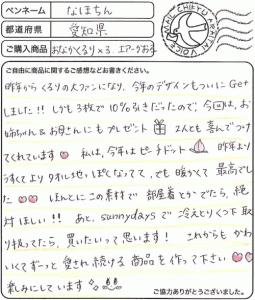 ペンネーム なほちん
都道府県 愛知県
ご購入商品 おなかくるり×3、エアーぐおる
MAIL CHIEFU ARIGATAI VOICE
ご自由に商品に関するご感想などお書きください。
昨年からくるりの大ファンになり、今年のデザインもついにGet
しました!! しかも3枚で10%引きだったので、今回は、お
姉ちゃん&お母さんにもプレゼント 2人とも喜んでつけ
てくれています 私は、今年はピーチドット 昨年より
うすくてよりタオル地っぽくなってて、でも暖かくて最高でし
た ほんとにこの素材で部屋着とかでたら、絶
対ほしい!! あと、sunnydaysで冷えとりくつ下取
り扱ってたら、買いたいって思います! これからもかわ
いくてずーっと愛され続ける商品を作って下さい
楽しみにしています
ご協力ありがとうございました。